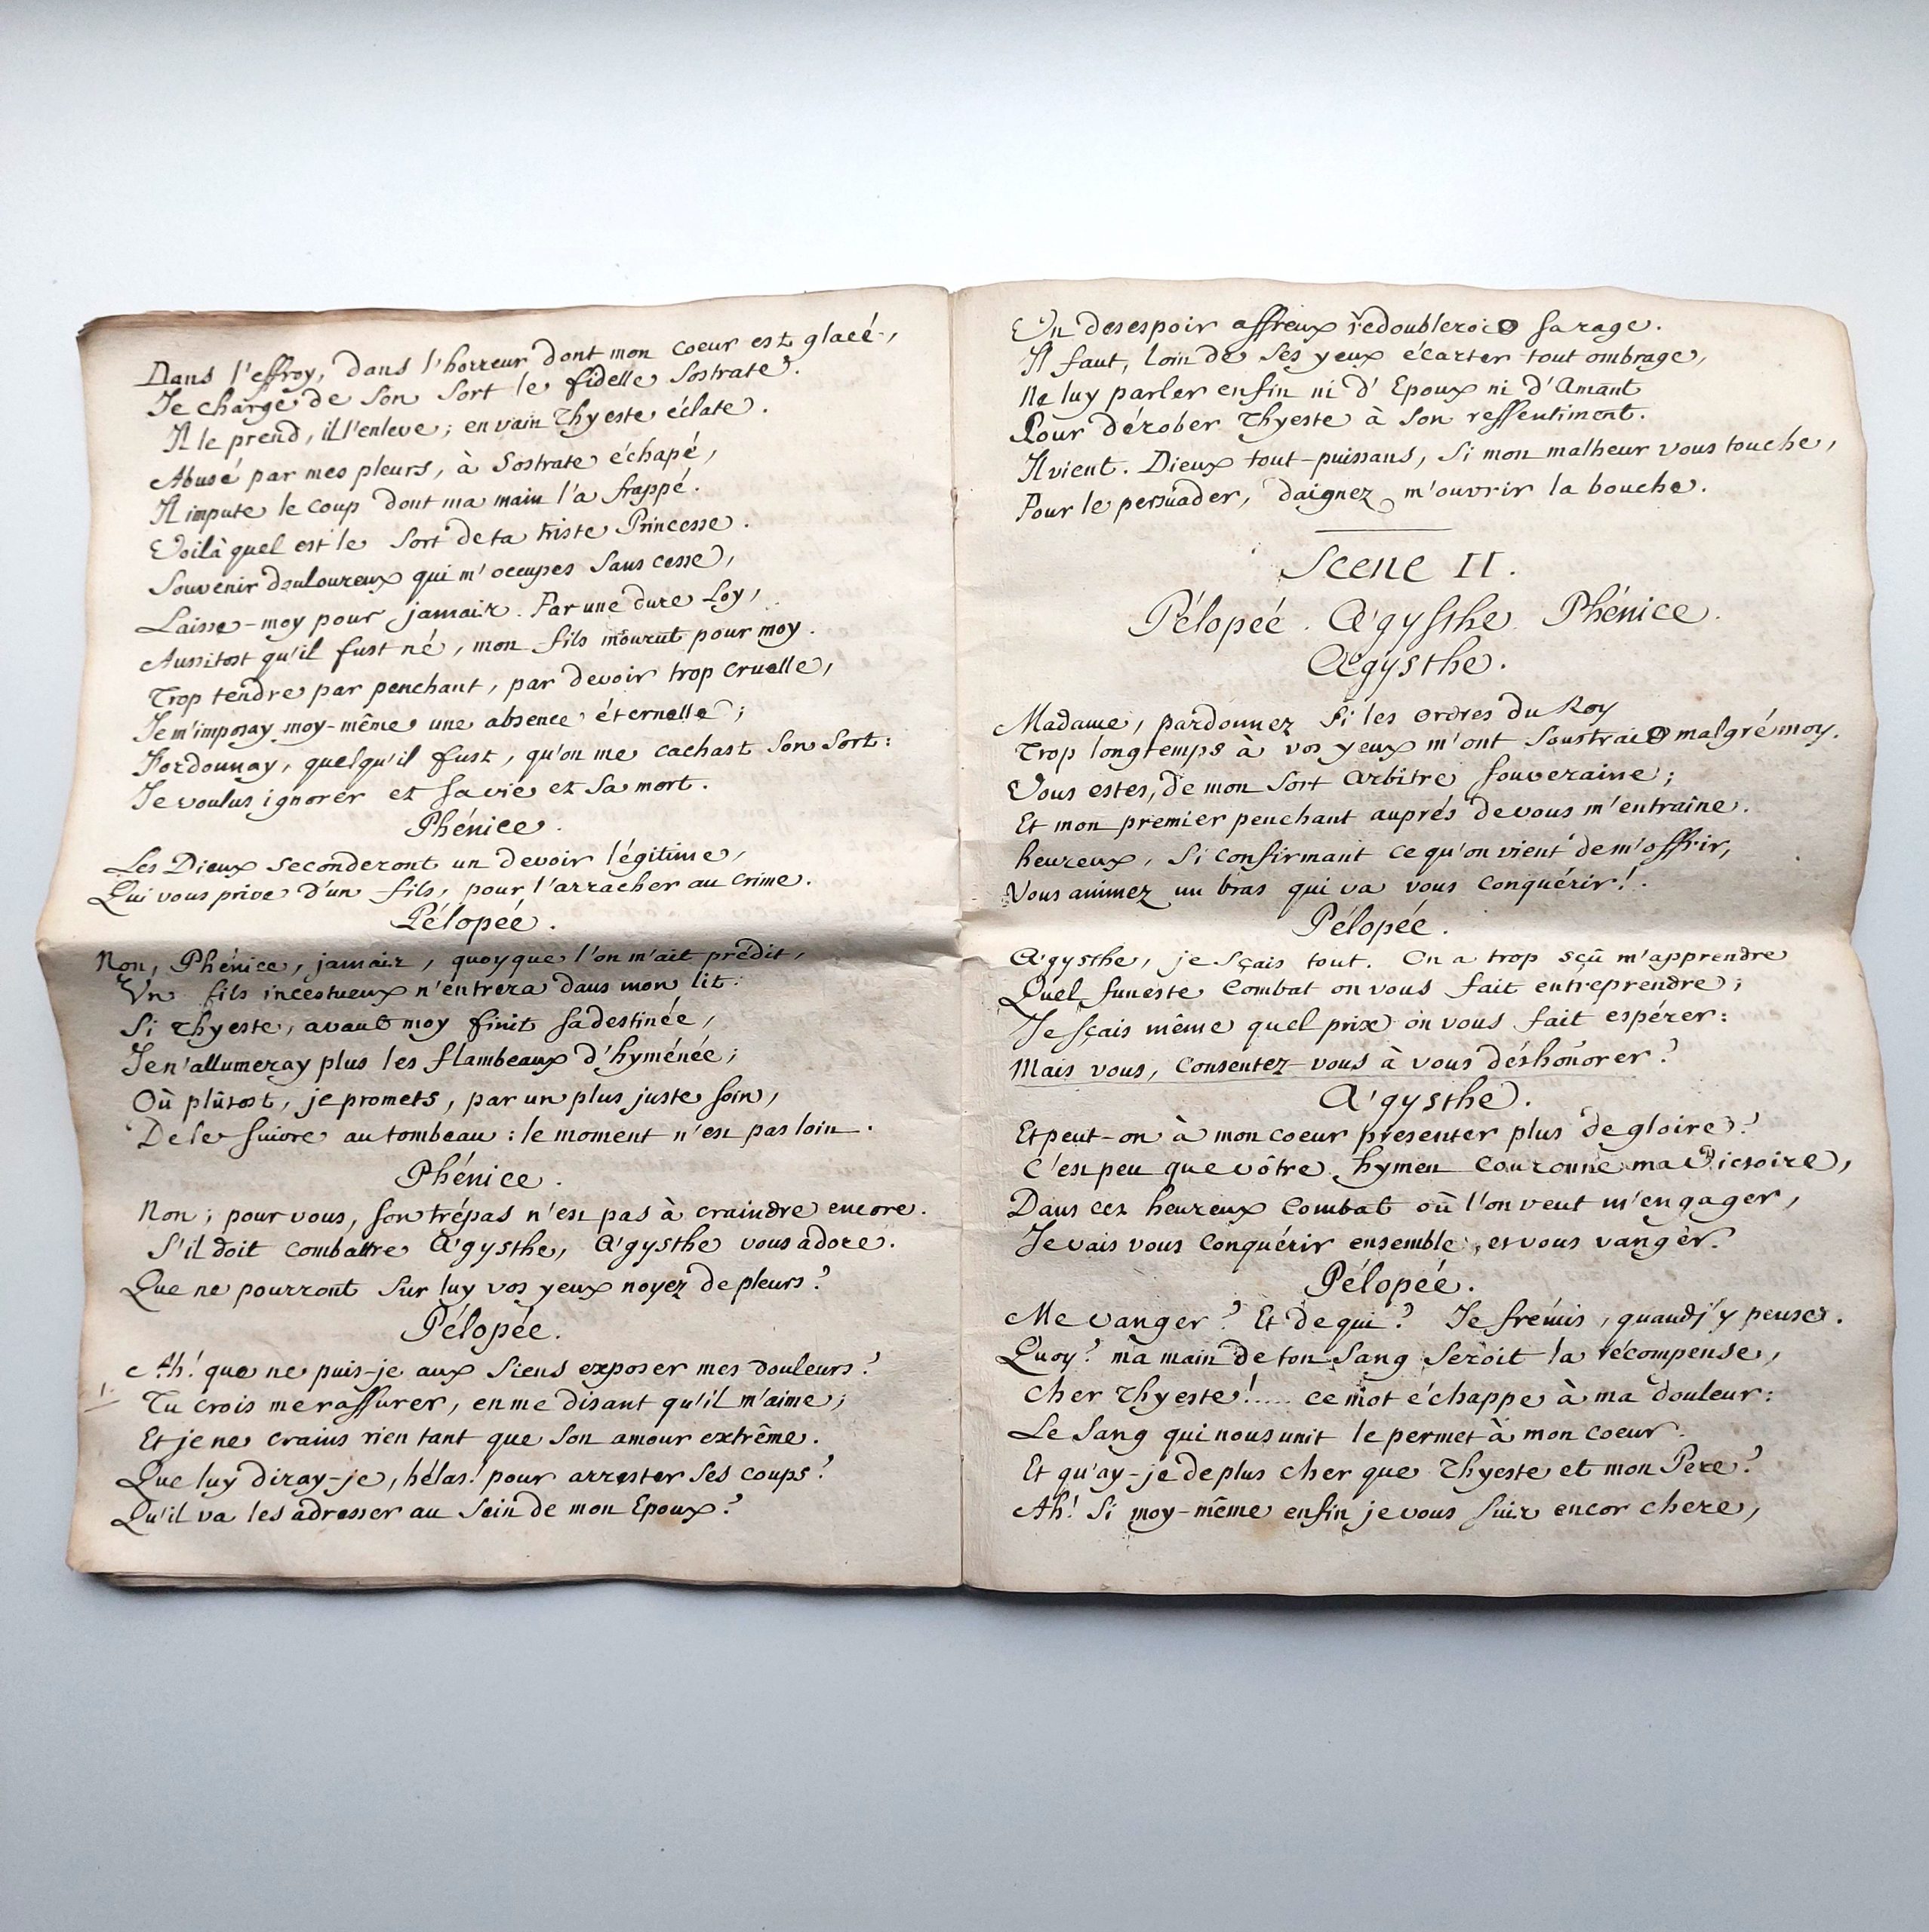 Dans l'effroy, dans l'horreur dont mon coeur est glacé,
Je charge de son sort le fidelle Sostrate.
Il le prend, il l'enleve; en vain Thyeste éclate.
Abusé par mes pleurs, à Sostrate échapé,
Il impute le coup dont ma main l'a frappé.
Voilà quel est le sort de ta triste Princesse.
Souvenir douloureux qui m'occupes sans cesse,
Laisse-moy pour jamais. Par une dure Loy,
Aussitost qu'il fust né, mon fils mourut pour moy.
Trop tendre par penchant, par devoir trop cruelle,
Je m'imposay moy-même une absence éternelle;
J'ordonnay, quelqu'il fust, qu'on me cachast son sort:
Je voulus ignorer et sa vie et sa mort.
Phénice.
Les Dieux seconderont un devoir légitime,
Qui vous prive d'un fils, pour l'arracher au crime.
Pélopée.
Non, Phénice, jamais, quoyque l'on m'ait prédit,
Un fils incestueux n'entrera dans mon lit:
Si Thyeste, avant moy finit sa destinée,
Je n'allumeray plus les flambeaux d'hyménée;
Où plûtost, je promets, par un plus juste soin,
De le suivre au tombeau: le moment n'est pas loin.
Phénice.
Non; pour vous, son trépas n'est pas à craindre encore.
S'il doit combattre Ægysthe, Ægysthe vous adore.
Que ne pourront sur luy vos yeux noyez de pleurs?
Pélopée.
Ah! que ne puis-je aux siens exposer mes douleurs?
Tu crois me rassurer, en me disant qu'il m'aime;
Et je ne crains rien tant que son amour extrême.
Que luy diray-je, hélas! pour arrester ses coups?
Qu'il va les adresser au sein de mon Epoux?
Un desespoir affreux redoubleroit sa rage.
Il faut, loin de ses yeux écarter tout ombrage,
Ne luy parler enfin ni d'Epoux ni d'Amant
Pour dérober Thyeste à son ressentiment.
Il vient. Dieux tout-puissans, si mon malheur vous touche,
Pour le persuader, daignez m'ouvrir la bouche.
Scene II.
Pélopée. Ægysthe. Phénice.
Ægysthe.
Madame, pardonnez si les ordres du Roy
Trop longtemps à vos yeux m'ont soustrait malgré moy.
Vous estes, de mon sort arbitre souveraine;
Et mon premier penchant auprés de vous m'entraîne.
heureux, si confirmant ce qu'on vient de m'offrir,
Vous animez un bras qui va vous conquérir!
Pélopée.
Ægysthe, je sçais tout. On a trop sçû m'apprendre
Quel funeste combat on vous fait entreprendre;
Je sçais même quel prix on vous fait espérer:
Mais vous, consentez-vous à vous déshonorer?
Ægysthe.
Et peut-on à mon coeur presenter plus de gloire?
C'est peu que vôtre hymen couronne ma victoire,
Dans cet heureux combat où l'on veut m'engager,
Je vais vous conquérir ensemble, et vous vanger.
Pélopée.
Me vanger? Et de qui? Je frémis, quand j'y pense.
Quoy? ma main de ton sang seroit la récompense,
Cher Thyeste!.... ce mot échappe à ma douleur:
Le sang qui nous unit le permet à mon coeur.
Et qu'ay-je de plus cher que Thyeste et mon Pere?
Ah! si moy-même enfin je vous suis encor chere,